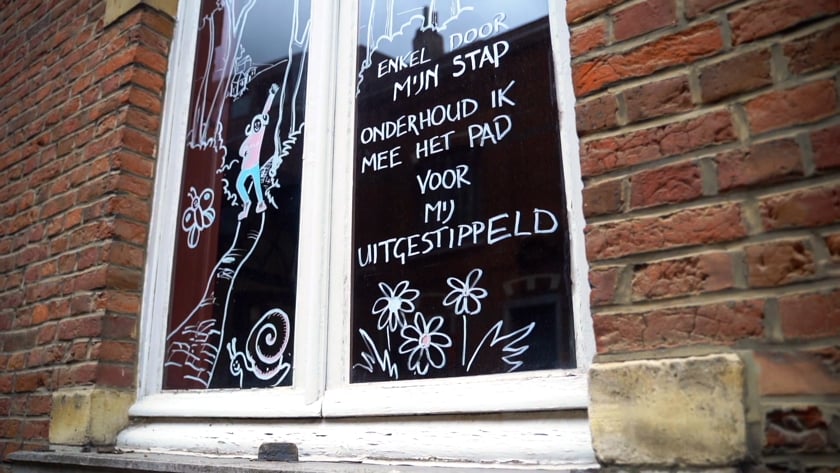 ENKEL DOOR
MIJN STAP
ONDERHOUD IK
MEE HET PAD
VOOR
MIJ
UITGESTIPPELD